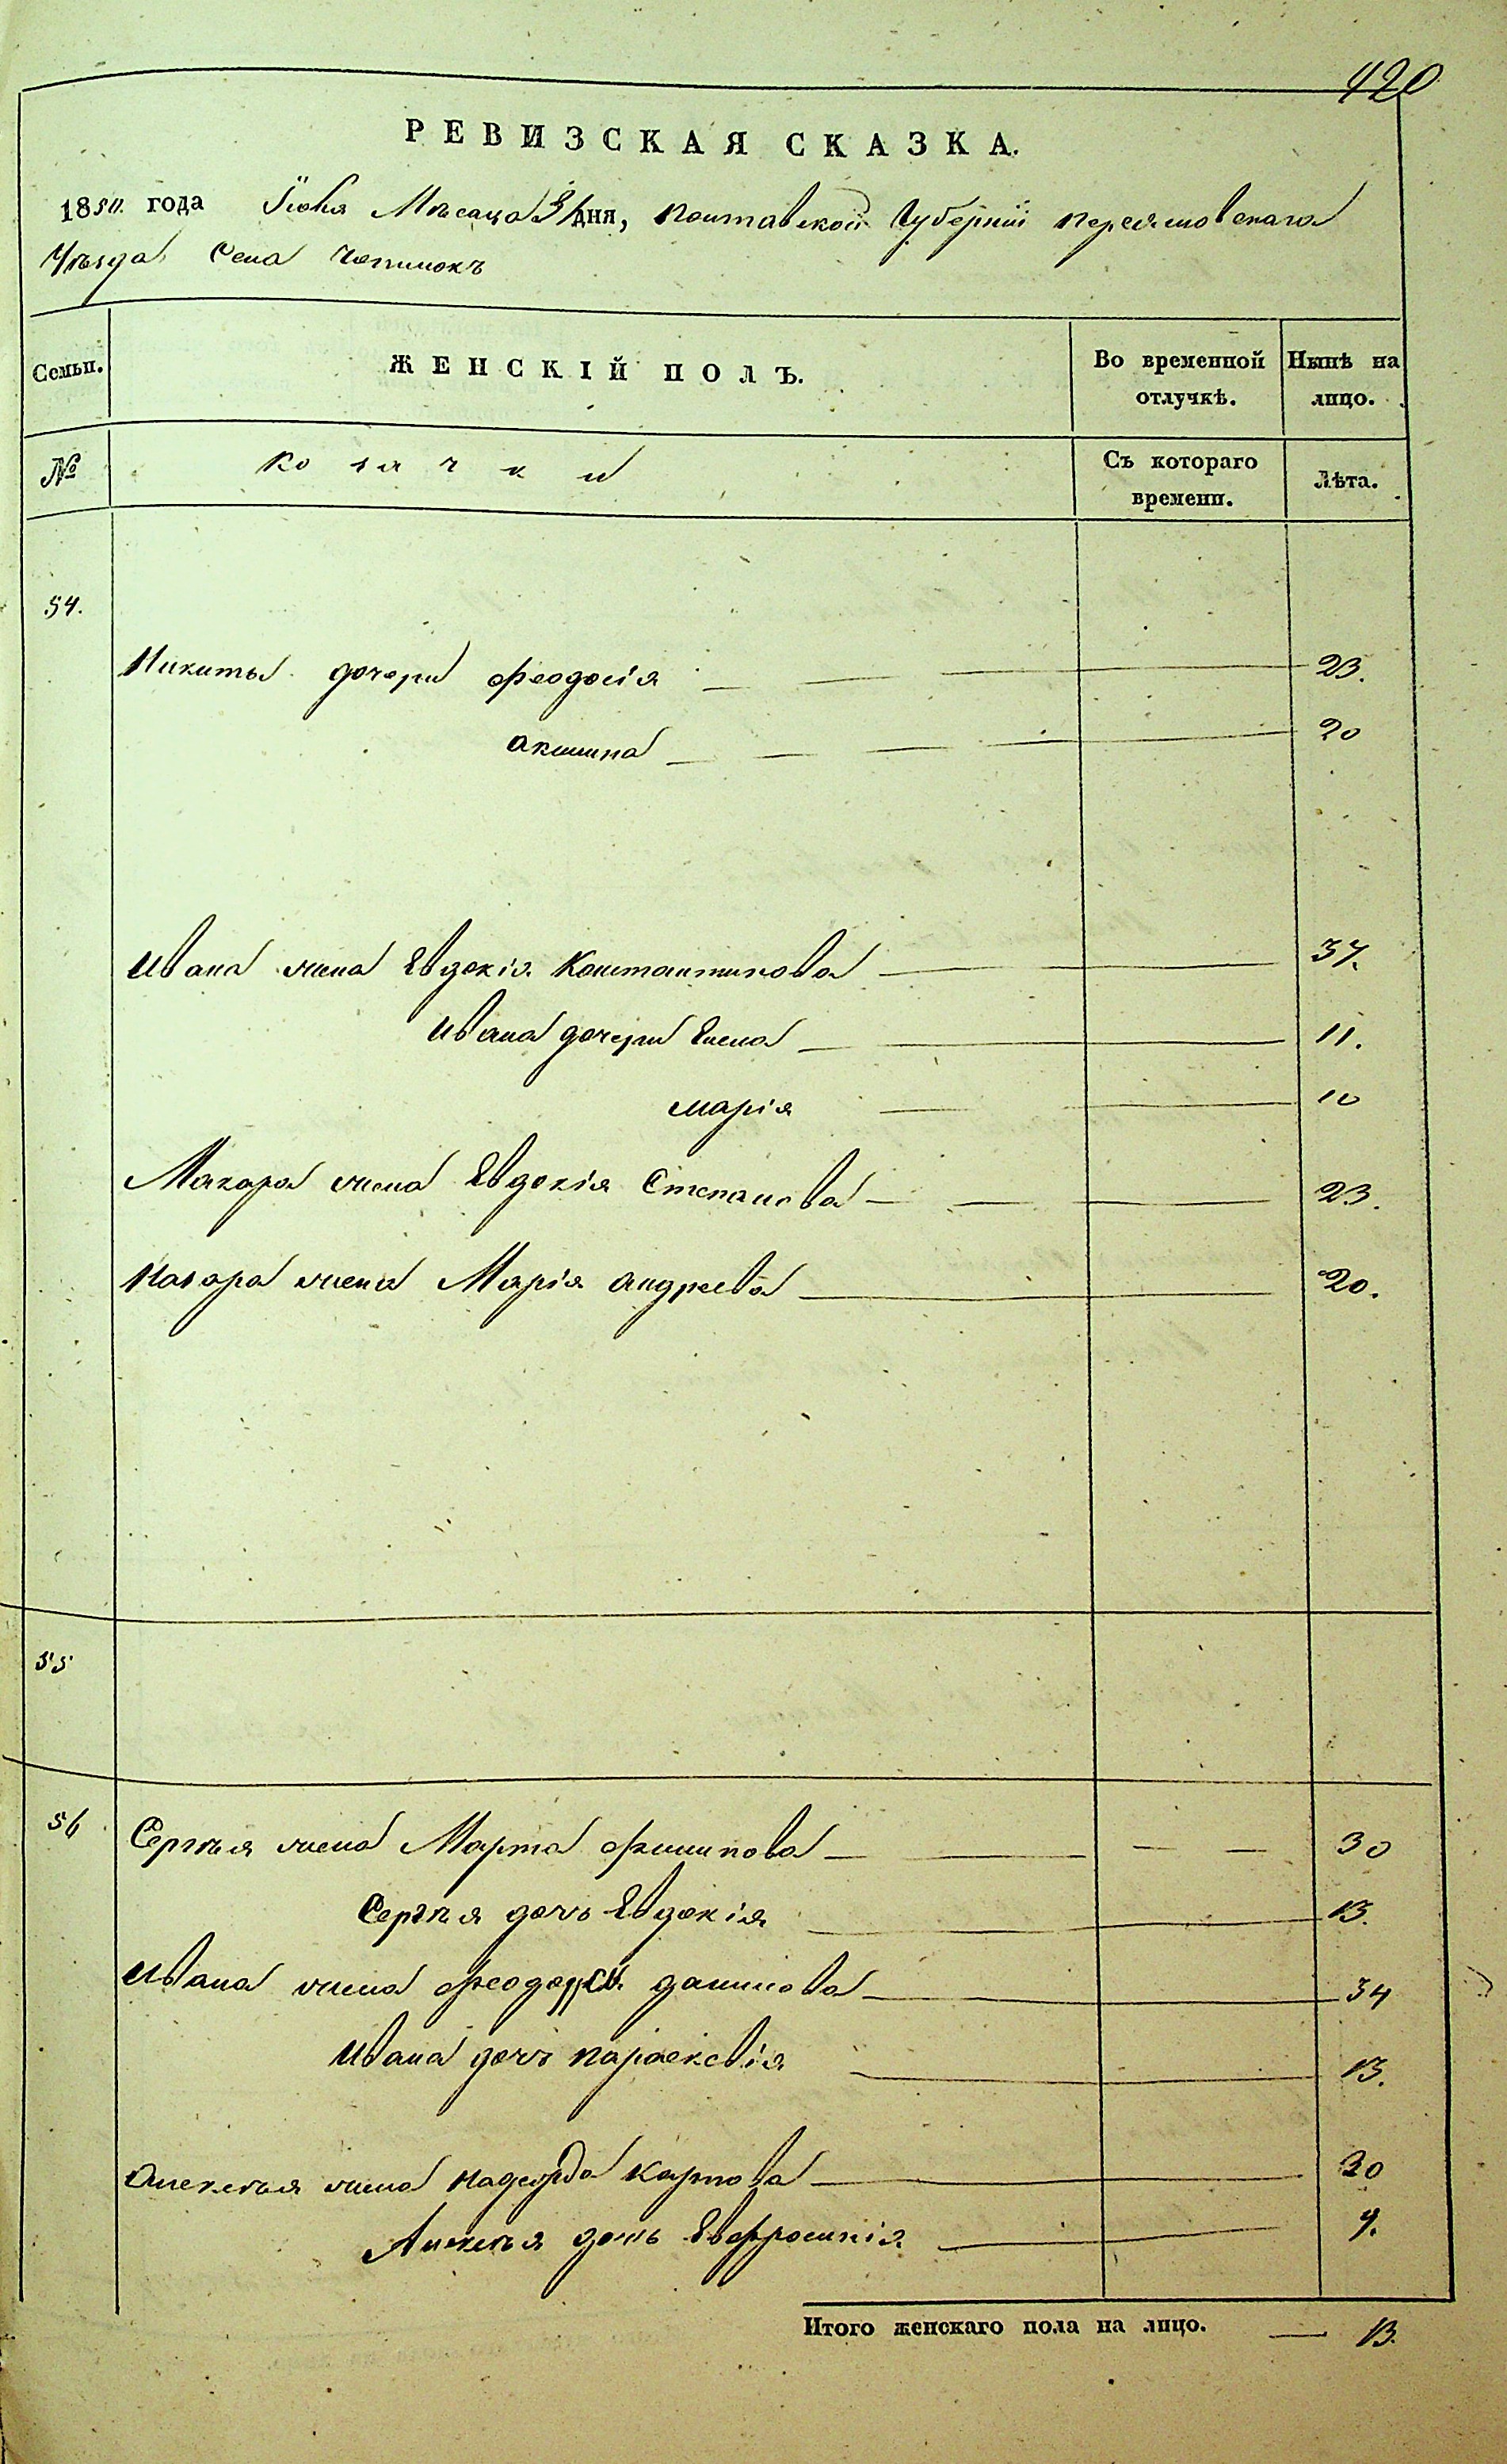 420
РЕВИЗСКАЯ СКАЗКА.
1850 года Мѣсаца дня, Полтавской Губерніи Переяславскаго
Уѣзда Села
Семьи. ЖЕНСКІЙ ПОЛЪ. Во временной отлучкѣ. Нынѣ на лицо.
№ Козачки Съ котораго времени. Лѣта.
54.
Никиты дочери Феодосія 23.
Акилина 20
Ивана жена Евдокія Константинова 37.
Ивана дочери Елена 11.
Марія 10
Макара жена Евдокія Степанова 23.
Назара жена Марія Андреева 20.
55
56 Сергѣя жена Марта Филипова 30
Сергѣя дочь Евдокія 13.
Ивана жена Данилова 34
Ивана дочь Параскевія 13.
Алексѣя жена Карпова 30
Алексѣя дочь Евфросинія
Итого женскаго пола на лицо. — 13.